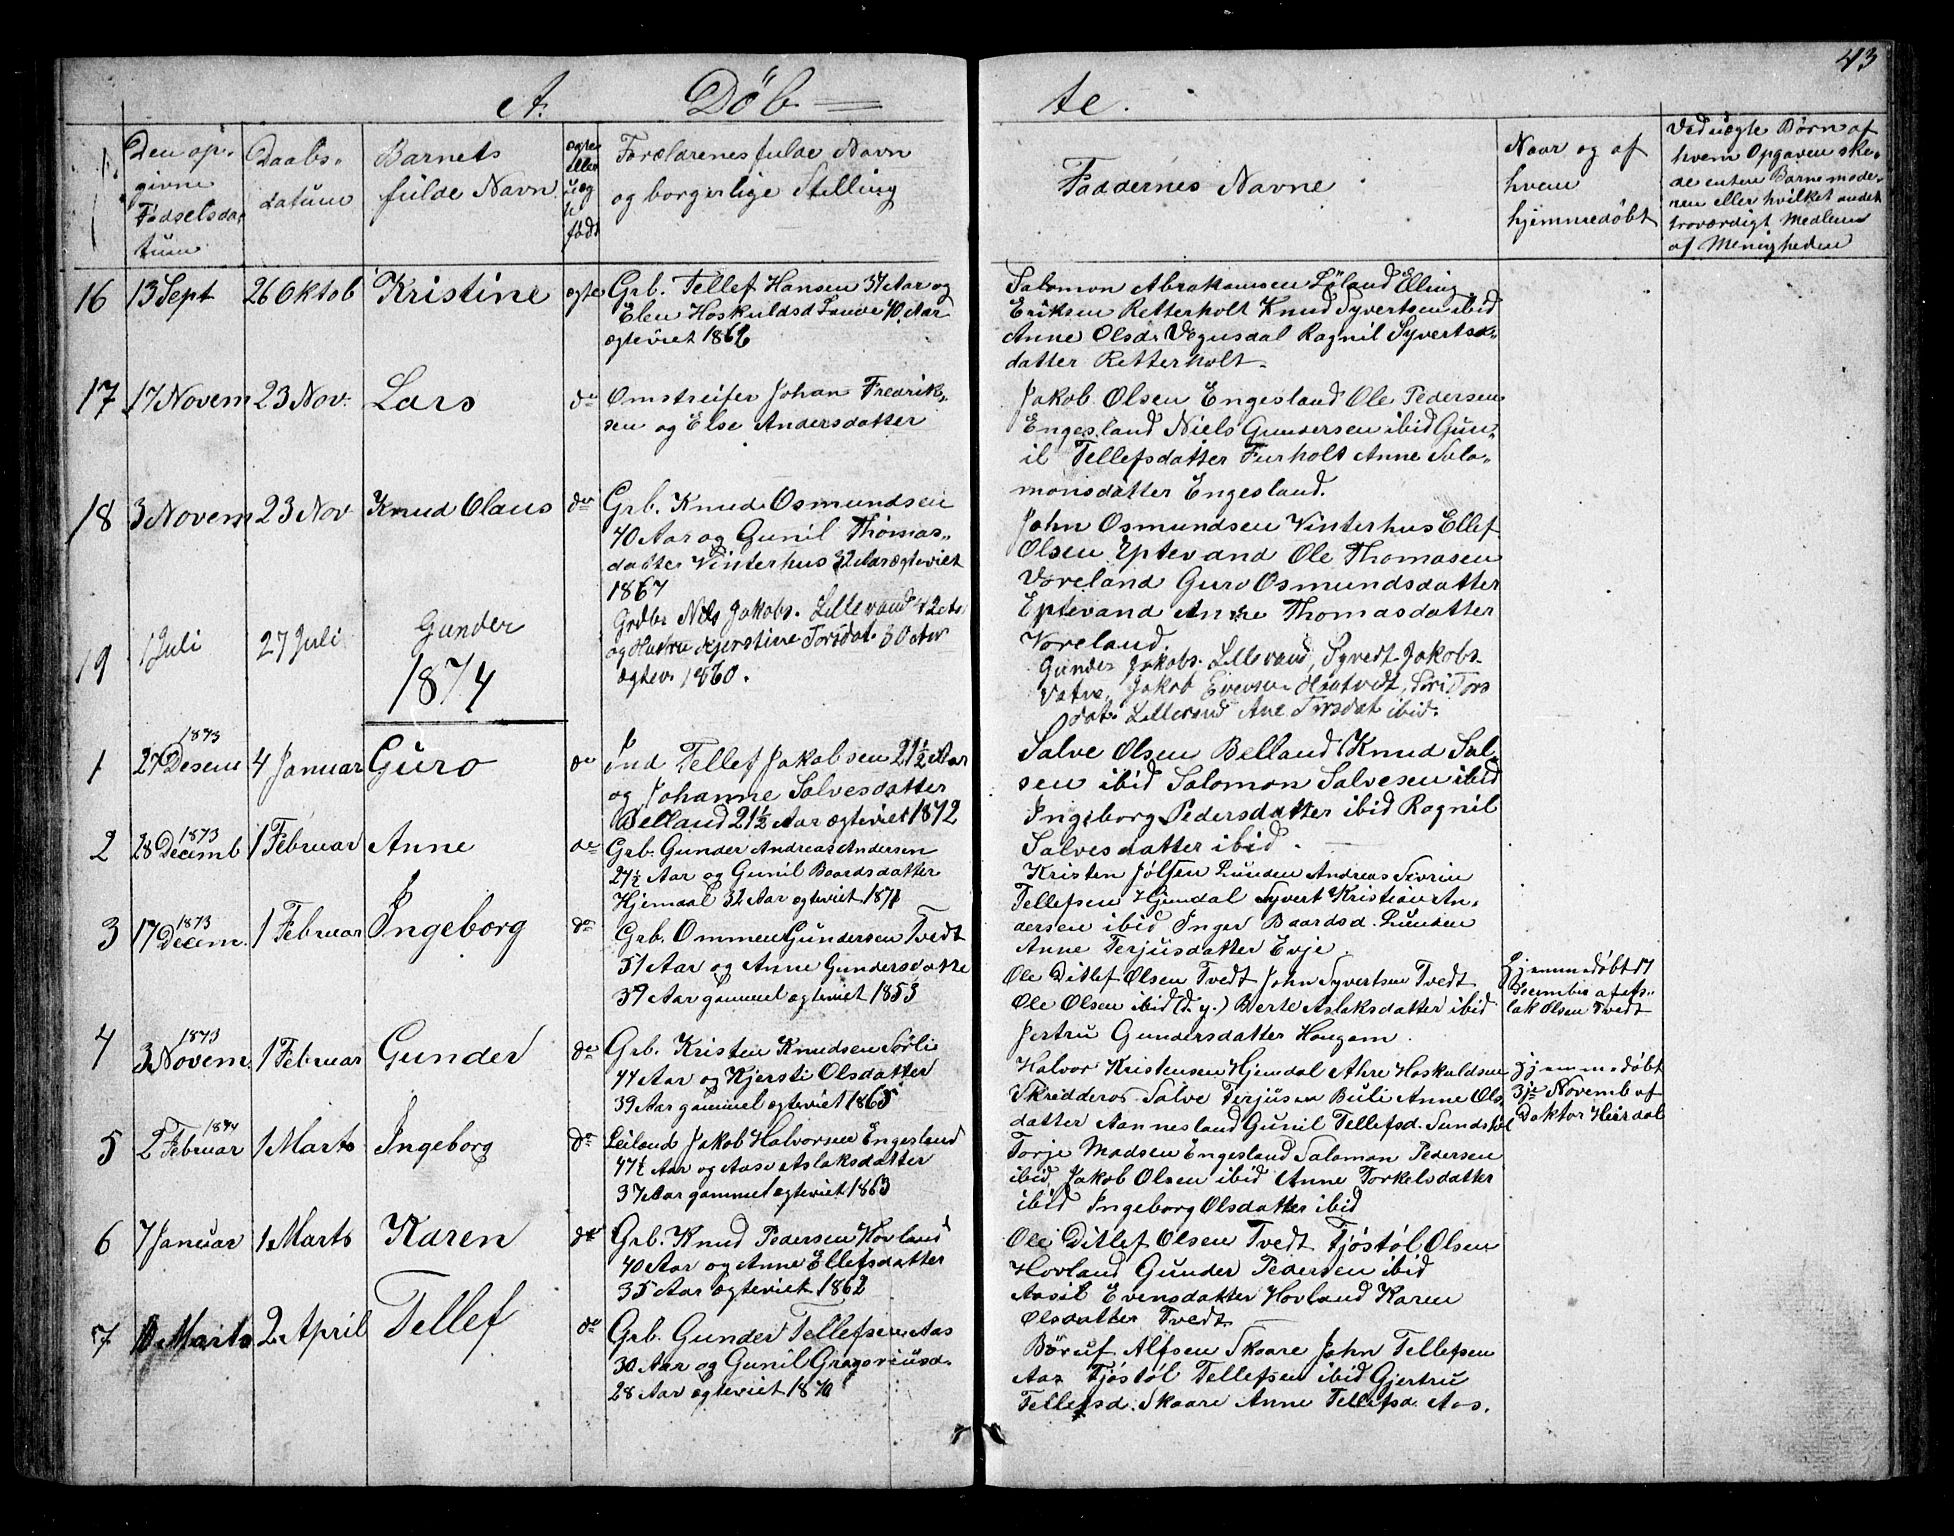 43
A. Döb = te.
Den op-
givne
Fødselsda-
tum
Daabs-
datum
Barnets
fulde Navn
ægte
eller
uæg
te
født
Forældrenes fulde Navn
og borgerlige Stilling
Faddernes Navne
Naar og af
hvem
hjemmedøbt
Ved uægte Børn af
hvem Opgaven ske-
de enten Barnemode-
ren eller hvilket andet
troværdigt Medlem
af Menigheden
16 13 Sept 26 Oktob Kristine ægte Grb. Tellef Hansen 37 Aar og
Elen Hoskuldsd 40 Aar
ægteviet 1862
Salomon Abrahamsen Löland Elling
Eriksen Retterholt Knud Syvertsen ibid
Anne Olsd. Vegusdal Ragnil Syverts-
datter Retterholt.
17 17 Novem 23 Nov. Lars do Omstreifer Johan Fredrik-
sen og Else Andersdatter
Jakob Olsen Engesland Ole Pedersen
Engesland Niels Gundersen ibid Gun-
il Tellefsdatter Furholt Anne Salo-
monsdatter Engesland.
18 3 Novem 23 Nov Knud Olaus do Grb. Knud Osmundsen
40 Aar og Gunil Thomas-
datter Vinterhus 32 Aar ægteviet
1867
John Osmundsen Vinterhus Ellef
Olsen Eptevand Ole Thomasen
Voreland Guro Osmundsdatter
Eptevand Anne Thomasdatter
Voreland.
19 1 Juli 27 Juli Gunder
Grdbr Nils Jakobs. Lillevand 42 Aar
og Hustru Kjerstine Torsdat. 30 Aar
ægtev. 1860.
Gunder Jakobs. Lillevand, Syvert Jakobs.
Vatne, Jakob Evensen Haatvedt, Siri Tors
dat. Lillevand Ane Torsdat ibid.
1874
1 1873
27 Desem 4 Januar Guro do Ind Tellef Jakobsen 21½ Aar
og Johanne Salvesdatter
Belland 21½ Aar ægteviet 1872
Salve Olsen Belland Knud Sal-
sen ibid Salomon Salvesen ibid
Ingeborg Pedersdatter ibid Ragnil
Salvesdatter ibid.
2 1873
28 Decemb 1 Februar Anne do Grb. Gunder Andreas Andersen
27½ Aar og Gunil Baardsdatter
Hjemdal 32 Aar ægteviet 1871
Kristen Lunden Andreas Severin
Tellefsen Hjemdal Syvert Kristian An-
dersen ibid Inger Baardsd. Lunden
Anne Terjusdatter Evje.
3 1873
17 Decem. 1 Februar Ingeborg do Grb. Ommen Gundersen Tvedt
51 Aar og Anne Gundersdatter
39 Aar gammel ægteviet 1853
Ole Ditlef Olsen Tvedt John Syvertsen Tvedt
Ole Olsen ibid (d. y.) Berte Aslaksdatter ibid
Jertru Gundersdatter Haugam.
Hjemmedøbt 17
Decembr af As-
lak Olsen Tvedt
4 1873
3 Novem. 1 Februar Gunder do Grb. Kristen Knudsen Sörli
44 Aar og Kjersti Olsdatter
39 Aar gammel ægteviet 1865
Halvor Kristensen Hjemdal Ahre Hoskuldsen
Skridderos Salve Terjusen Büli Anne Ols-
datter Aannesland Gunil Tellefsd.
Hjemmedøbt
3je Novemb af
Doktor Heirdal
5 1874
2 Februar 1 Marts Ingeborg do Leiland Jakob Halvorsen Engesland
47½ Aar og Aase Aslaksdatter
37 Aar gammel ægteviet 1863
Torje Madsen Engesland Salomon Pedersen
ibid Jakob Olsen ibid Anne Torkelsdatter
ibid Ingeborg Olsdatter ibid
6 7 Januar 1 Marts Karen do Grb. Knud Pedersen Hovland
40 Aar og Anne Ellefsdatter
35 Aar ægteviet 1862
Ole Ditlef Olsen Tvedt Tjöstöl Olsen
Hovland Gunder Pedersen ibid
Aasil Evensdatter Hovland Karen
Olsdatter Tvedt
7 Marts 2 April Tellef do Grb. Gunder Tellefsen Aas
30 Aar og Gunil Gregoriusd.
28 Aar ægteviet 1870
Böruf Alfsen Skaare John Tellefsen
Aas Tjöstöl Tellefsen ibid Gjertru
Tellefsd. Skaare Anne Tellefsd Aas.